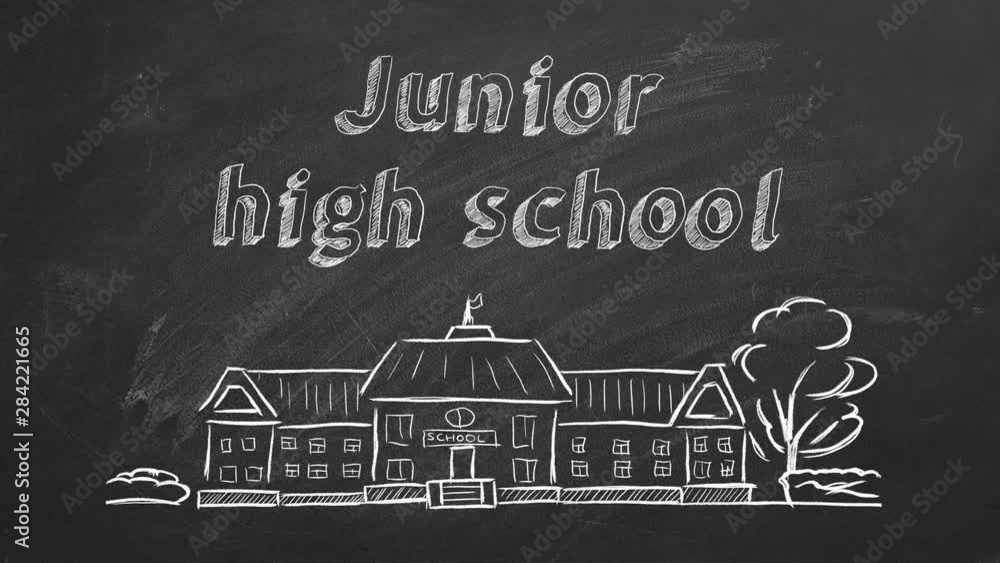 Junior
high school
SCHOOL
Adobe Stock | #284221665